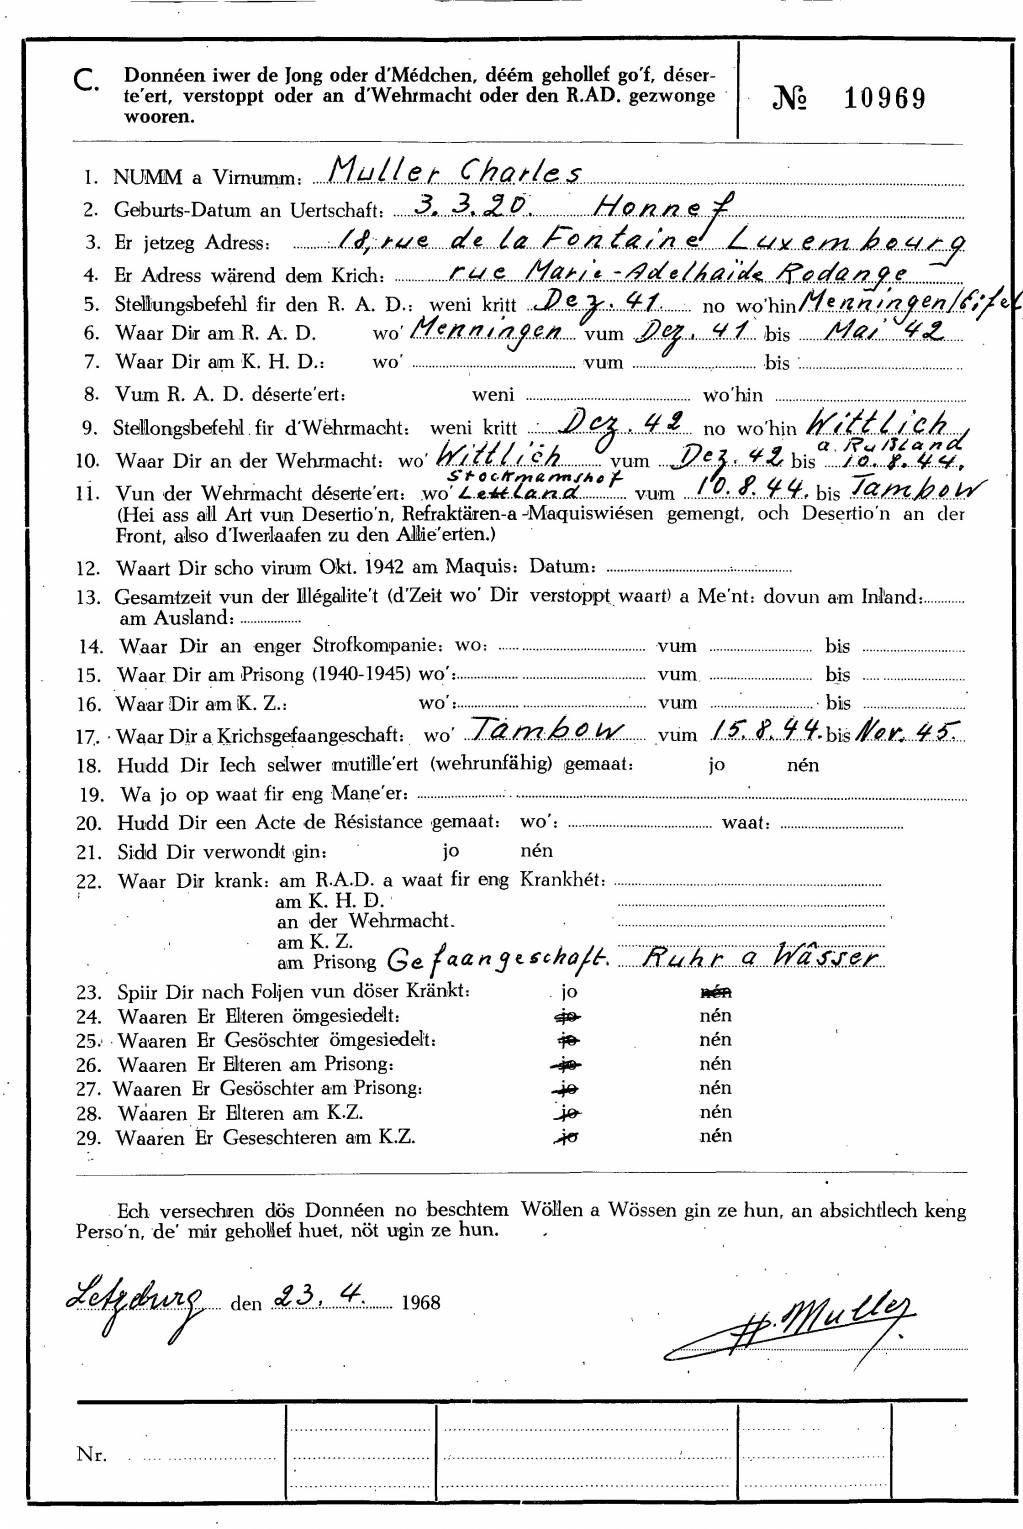 C. Donnéen iwer de Jong oder d'Médchen, déém gehollef go'f, déser-
te'ert, verstoppt oder an d'Wehrmacht oder den R.AD. gezwonge
wooren.
№ 10969
1. NUMM a Virnumm: Muller Charles
2. Geburts-Datum an Uertschaft: 3.3.20. Honnef
3. Er jetzeg Adress: 18, rue de la Fontaine Luxembourg
4. Er Adress wärend dem Krich: rue Marie-Adelhaïde Rodange
5. Stellungsbefehl fir den R. A. D.: weni kritt Dez. 41 no wo'hin Menningen/Eifel
6. Waar Dir am R. A. D. wo' Menningen vum Dez. 41 bis Mai 42
7. Waar Dir am K. H. D.: wo' vum bis
8. Vum R. A. D. déserte'ert: weni wo'hin
9. Stellongsbefehl fir d'Wehrmacht: weni kritt Dez. 42 no wo'hin Wittlich
a Rußland
10. Waar Dir an der Wehrmacht: wo' Wittlich vum Dez. 42 bis 10.8.44.
Stockmannshof
11. Vun der Wehrmacht déserte'ert: wo' Lettland vum 10.8.44. bis Tambow
(Hei ass all Art vun Desertio'n, Refraktären-a-Maquiswiésen gemengt, och Desertio'n an der
Front, also d'Iwerlaafen zu den Allie'erten.)
12. Waart Dir scho virum Okt. 1942 am Maquis: Datum:
13. Gesamtzeit vun der Illégalite't (d'Zeit wo' Dir verstoppt waart) a Me'nt: dovun am Inland:
am Ausland:
14. Waar Dir an enger Strofkompanie: wo: vum bis
15. Waar Dir am Prisong (1940-1945) wo': vum bis
16. Waar Dir am K. Z.: wo': vum bis
17. Waar Dir a Krichsgefaangeschaft: wo' Tambow vum 15.8.44. bis Nov. 45.
18. Hudd Dir Iech selwer mutille'ert (wehrunfähig) gemaat: jo nén
19. Wa jo op waat fir eng Mane'er:
20. Hudd Dir een Acte de Résistance gemaat: wo': waat:
21. Sidd Dir verwondt gin: jo nén
22. Waar Dir krank: am R.A.D. a waat fir eng Krankhét:
am K. H. D.
an der Wehrmacht.
am K. Z.
am Prisong Gefaangeschaft. Ruhr a Wâsser
23. Spiir Dir nach Foljen vun döser Kränkt: jo nén
24. Waaren Er Elteren ömgesiedelt: jo nén
25. Waaren Er Gesöschter ömgesiedelt: jo nén
26. Waaren Er Elteren am Prisong: jo nén
27. Waaren Er Gesöschter am Prisong: jo nén
28. Waaren Er Elteren am K.Z. jo nén
29. Waaren Er Geseschteren am K.Z. jo nén
Ech versechren dös Donnéen no beschtem Wöllen a Wössen gin ze hun, an absichtlech keng
Perso'n, de' mir gehollef huet, nöt ugin ze hun.
Letzburg den 23. 4. 1968
H. Muller
Nr.